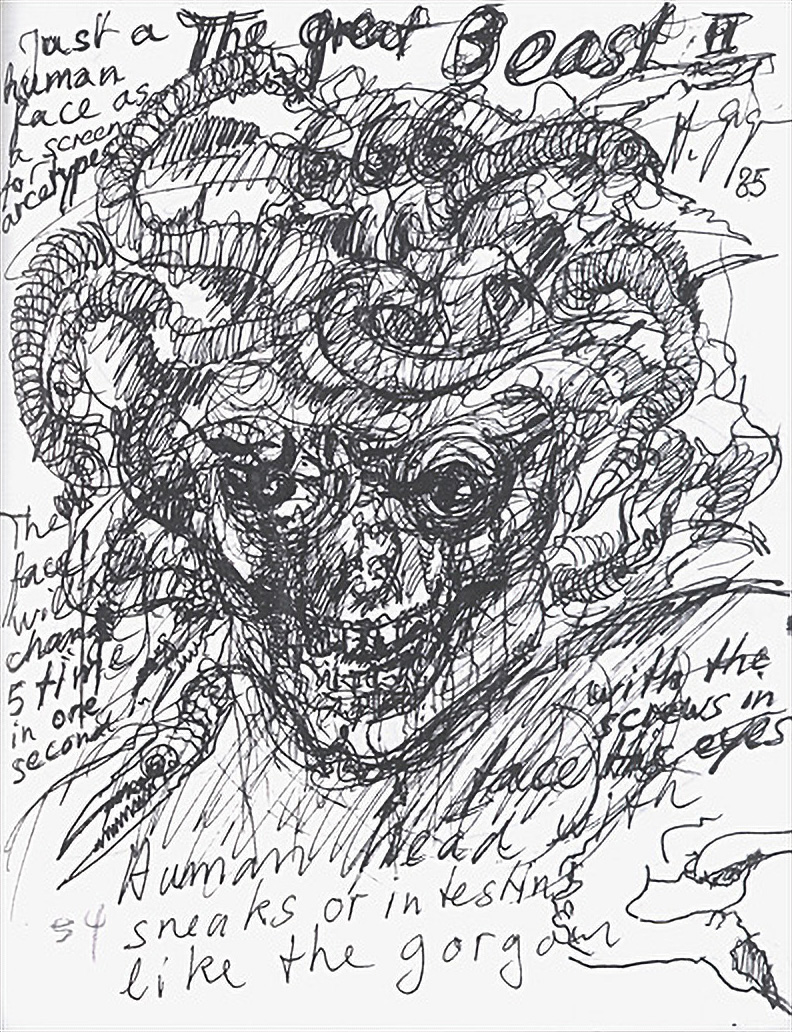 The great Beast II
Just a
human
face as
a screen
for
arcetypes
H. Gig
85
The
face
will
change
5 time
in one
second
with the
screws in
face his eyes
Human head with
sneaks or intestins
like the gorgon
54